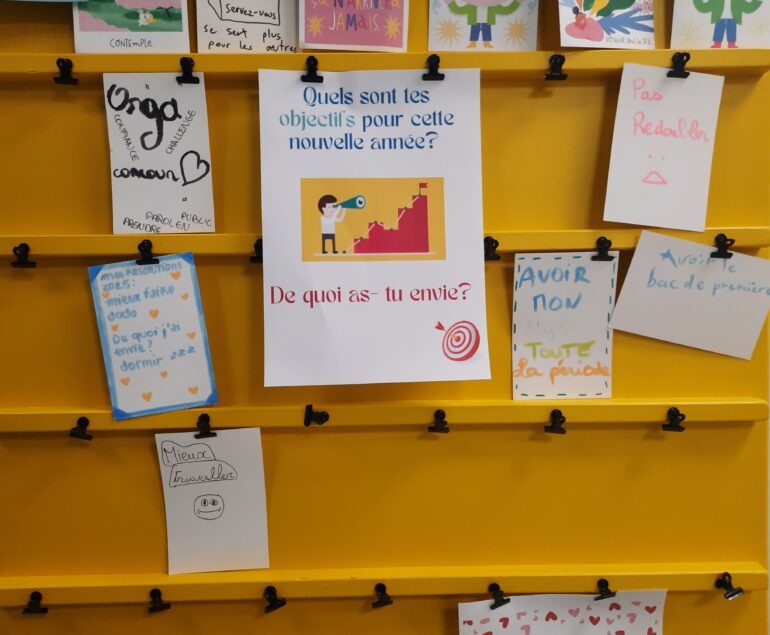 CONTEMPLE
SERVEZ-VOUS
se sert plus
pour les autres
ÇA N'ARRIVERA
JAMAIS.
Quels sont tes
objectifs pour cette
nouvelle année?
De quoi as- tu envie?
Orga
CONFIANCE
CHALLENGE
concour
PAROLE EN
PUBLIC
PRENDRE
Pas
Redoubler
mon RESOLUTIONS
2025:
mieux faire
dodo
De quoi j'ai
envie?
dormir zzz
AVOIR
MON
Stage
TOUTE
La période
Avoir le
bac de première
Mieux
travailler